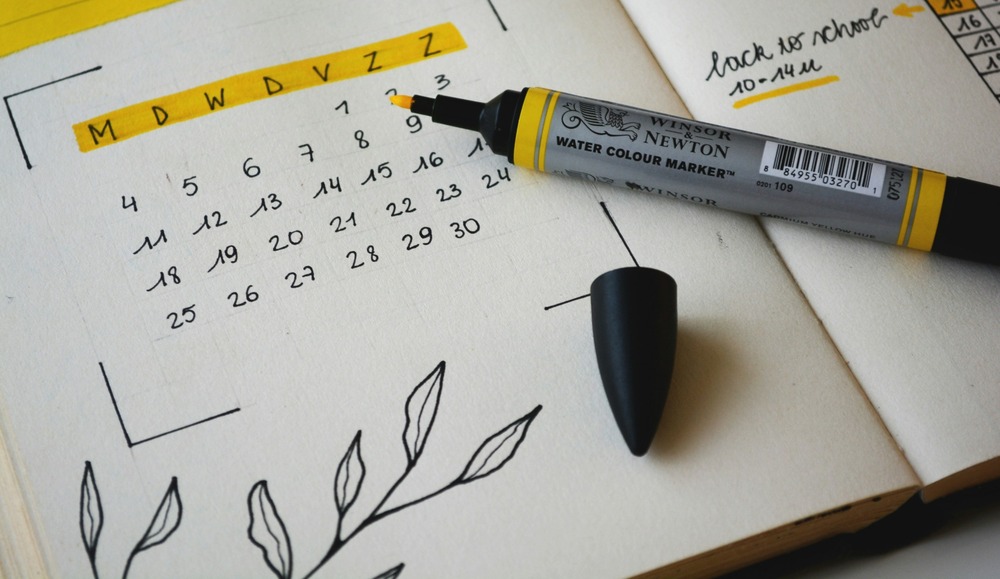 M D W D V Z Z
1 3
4 5 6 7 8 9
11 12 13 14 15 16
18 19 20 21 22 23 24
25 26 27 28 29 30
back to school
10-14u
16
17
WINSOR
&
NEWTON
WATER COLOUR MARKER™
0201 109
8 84955 03270 1
WINSOR
CADMIUM YELLOW HUE